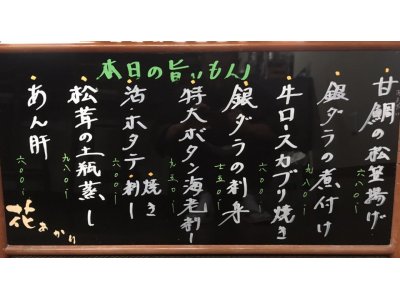 本日の旨いもん
甘鯛の松笠揚げ
銀ダラの煮付け
九八〇
牛ロースカブリ焼き
六〇〇
銀ダラの刺身
七五〇
特大ボタン海老刺し
九五〇
活ホタテ 刺し・焼き
六〇〇
松茸の土瓶蒸し
九八〇
あん肝
六〇〇
花あかり